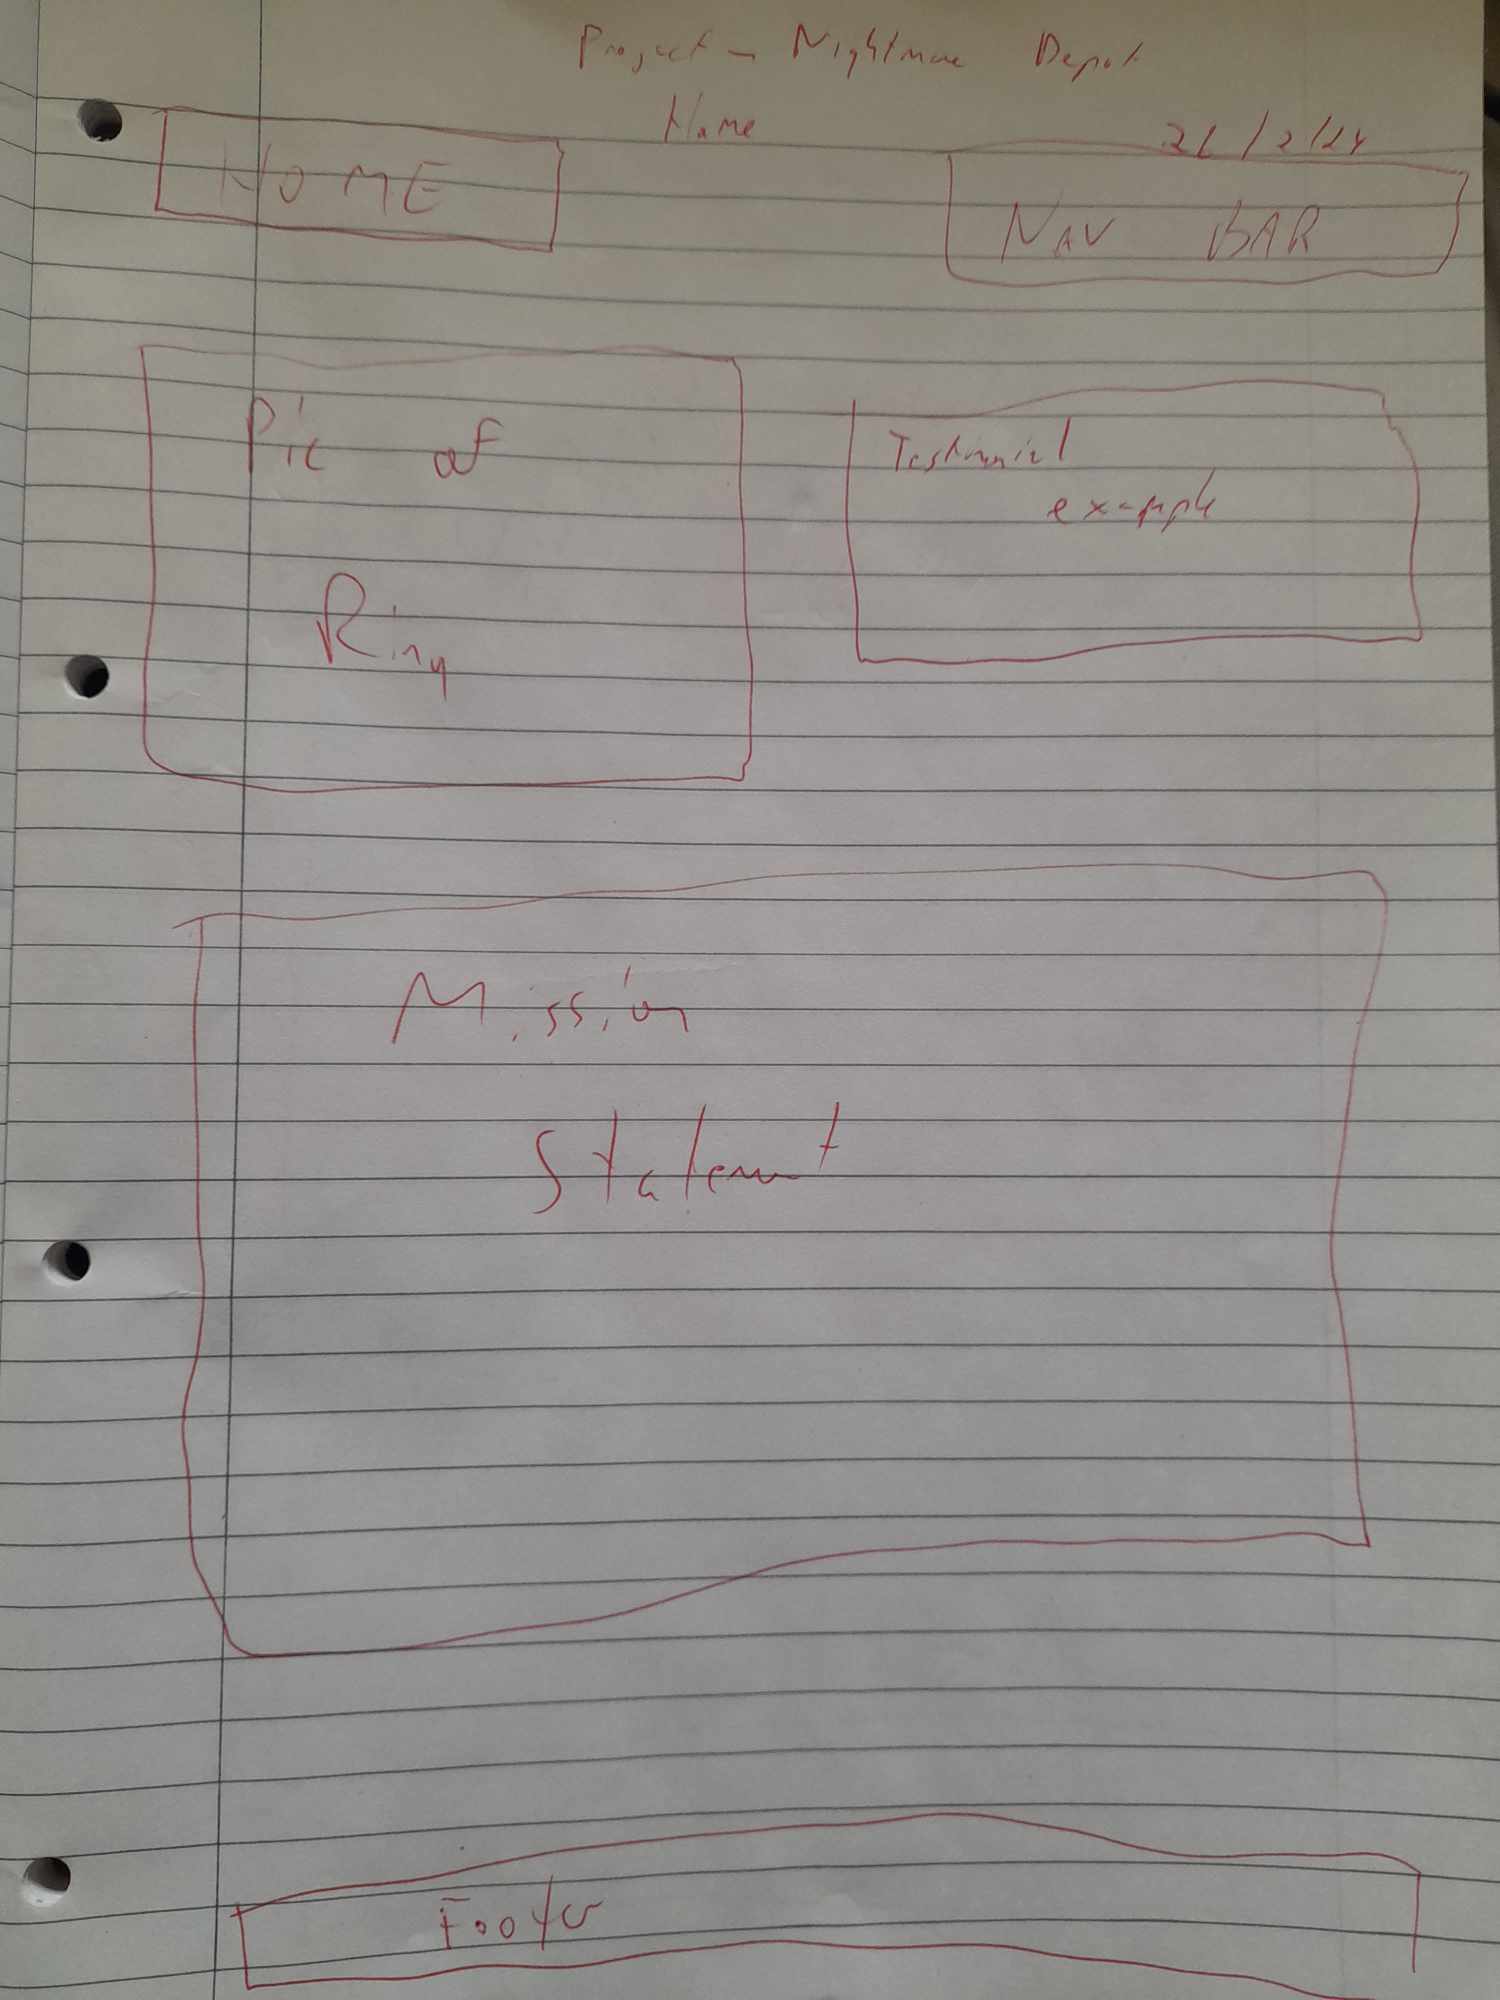 Project - Nightmare Depot
Name
21/2/24
HOME
NAV BAR
Pic of
Ring
Testimonial
example
Mission
Statement
Footer